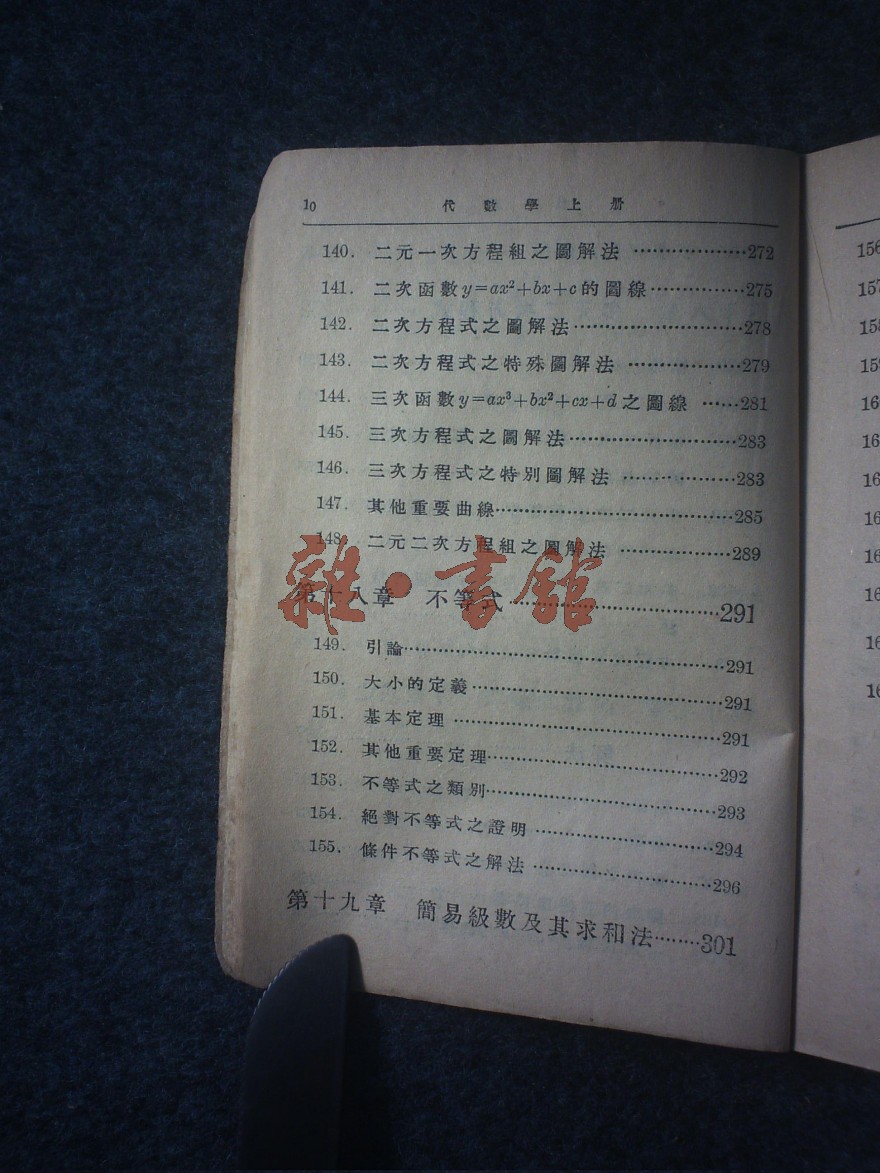 10 代數學上册
140. 二元一次方程組之圖解法 ………………272
141. 二次函數y=ax²+bx+c的圖線……………275
142. 二次方程式之圖解法………………………278
143. 二次方程式之特殊圖解法 ………………279
144. 三次函數y=ax³+bx²+cx+d之圖線 ……281
145. 三次方程式之圖解法………………………283
146. 三次方程式之特別圖解法 ………………283
147. 其他重要曲線………………………………285
148. 二元二次方程組之圖解法 ………………289
雜·書館
第十八章 不等式……………………………291
149. 引論…………………………………………291
150. 大小的定義…………………………………291
151. 基本定理 ……………………………………291
152. 其他重要定理………………………………292
153. 不等式之類別………………………………293
154. 絕對不等式之證明 ………………………294
155. 條件不等式之解法 ………………………296
第十九章 簡易級數及其求和法………301
156
157